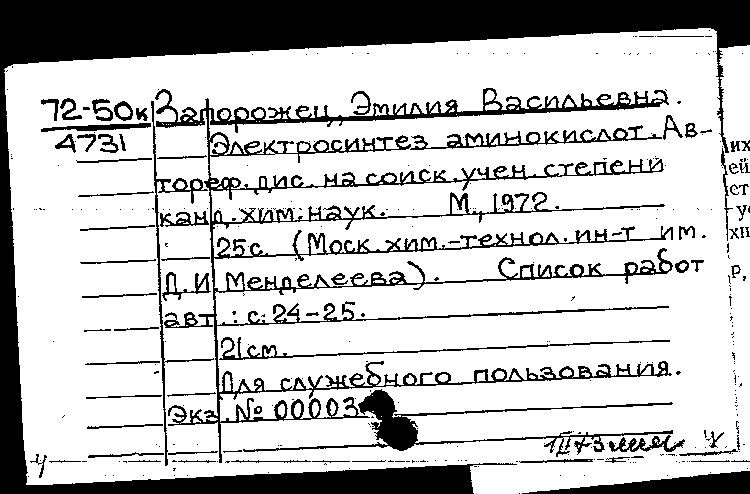 72-50к Запорожец, Эмилия Васильевна.
4731 Электросинтез аминокислот. Ав-
тореф. дис. на соиск. учен. степени
канд. хим. наук. М., 1972.
25с. (Моск. хим.-технол. ин-т им.
Д.И. Менделеева). Список работ
авт.: с. 24-25.
21см.
Для служебного пользования.
Экз. № 00003